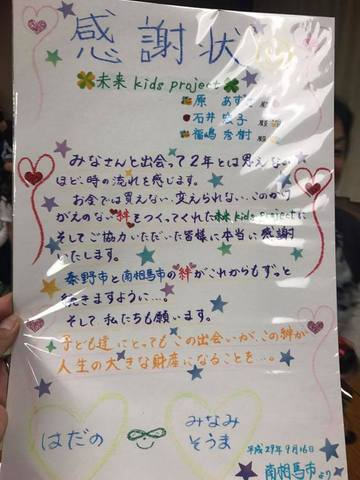 感謝状
未来 kids project
原 あす
石井 宏子
福嶋 秀樹
みなさんと出会って2年とは思えない
ほど、時の流れを感じます。
お金では買えない、変えられない、このかけ
がえのない絆をつくってくれた未来kids projectに
そしてご協力いただいた皆様に本当に感謝
いたします。
秦野市と南相馬市の絆がこれからもずっと
続きますように…。
そして私たちも願います。
子ども達にとってもこの出会いが、この絆が
人生の大きな財産になることを…。
はだの
みなみ
そうま
平成29年9月16日
南相馬市より